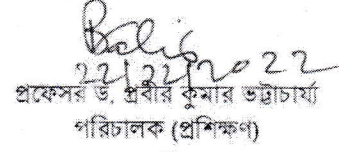 22/12/2022
প্রফেসর ড. প্রবীর কুমার ভট্টাচার্য্য
পরিচালক (প্রশিক্ষণ)